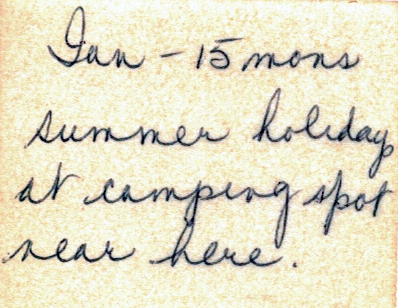 Ian - 15 mons
summer holidays
at camping spot
near here.